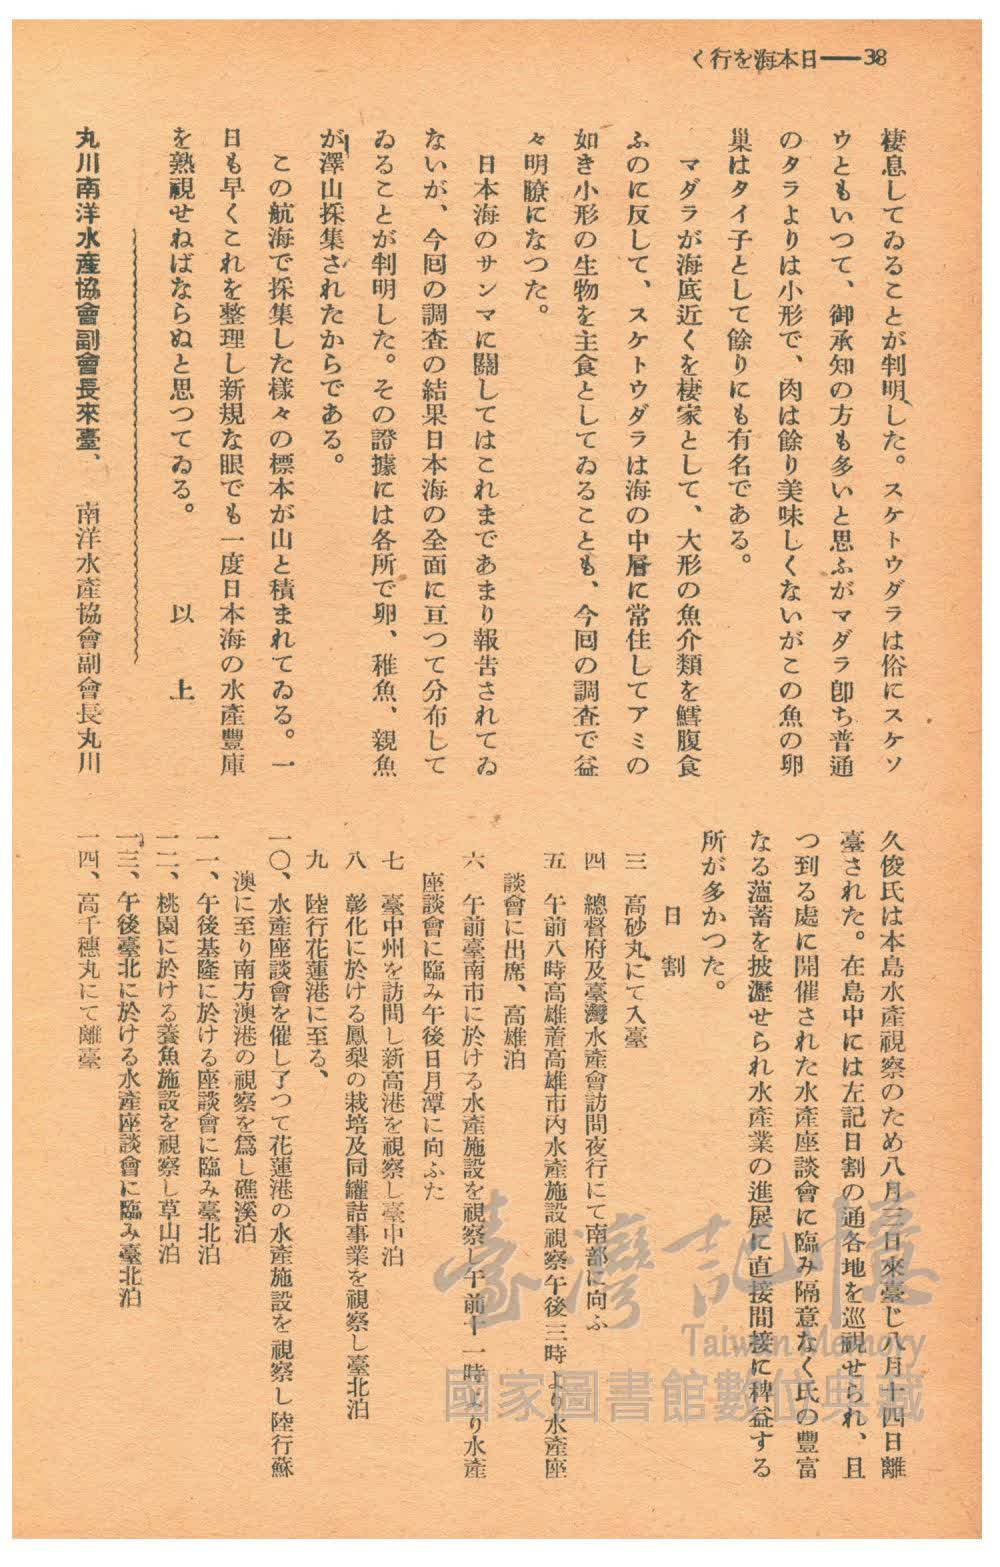 く行を海本日――38
棲息してゐることが判明した。スケトウダラは俗にスケソ
ウともいつて、御承知の方も多いと思ふがマダラ卽ち普通
のタラよりは小形で、肉は餘り美味しくないがこの魚の卵
巢はタイ子として餘りにも有名である。
マダラが海底近くを棲家として、大形の魚介類を鱈腹食
ふのに反して、スケトウダラは海の中層に常住してアミの
如き小形の生物を主食としてゐることも、今囘の調査で益
々明瞭になつた。
日本海のサンマに關してはこれまであまり報告されてゐ
ないが、今囘の調査の結果日本海の全面に亘つて分布して
ゐることが判明した。その證據には各所で卵、稚魚、親魚
が澤山採集されたからである。
この航海で採集した樣々の標本が山と積まれてゐる。一
日も早くこれを整理し新規な眼でも一度日本海の水產豐庫
を熟視せねばならぬと思つてゐる。 以 上
丸川南洋水產協會副會長來臺、 南洋水產協會副會長丸川
久俊氏は本島水產視察のため八月三日來臺じ八月十四日離
臺された。在島中には左記日割の通各地を巡視せられ、且
つ到る處に開催された水產座談會に臨み隔意なく氏の豐富
なる薀蓄を披瀝せられ水產業の進展に直接間接に稗益する
所が多かつた。
日 割
三 高砂丸にて入臺
四 總督府及臺灣水產會訪問夜行にて南部に向ふ
五 午前八時高雄着高雄市內水產施設視察午後三時より水產座
談會に出席、高雄泊
六 午前臺南市に於ける水產施設を視察し午前十一時より水產
座談會に臨み午後日月潭に向ふた
七 臺中州を訪問し新高港を視察し臺中泊
八 彰化に於ける鳳梨の栽培及同罐詰事業を視察し臺北泊
九 陸行花蓮港に至る、
一〇、水產座談會を催し了つて花蓮港の水產施設を視察し陸行蘇
澳に至り南方澳港の視察を爲し礁溪泊
一一、午後基隆に於ける座談會に臨み臺北泊
一二、桃園に於ける養魚施設を視察し草山泊
一三、午後臺北に於ける水產座談會に臨み臺北泊
一四、高千穗丸にて離臺
臺灣記憶
Taiwan Memory
國家圖書館數位典藏